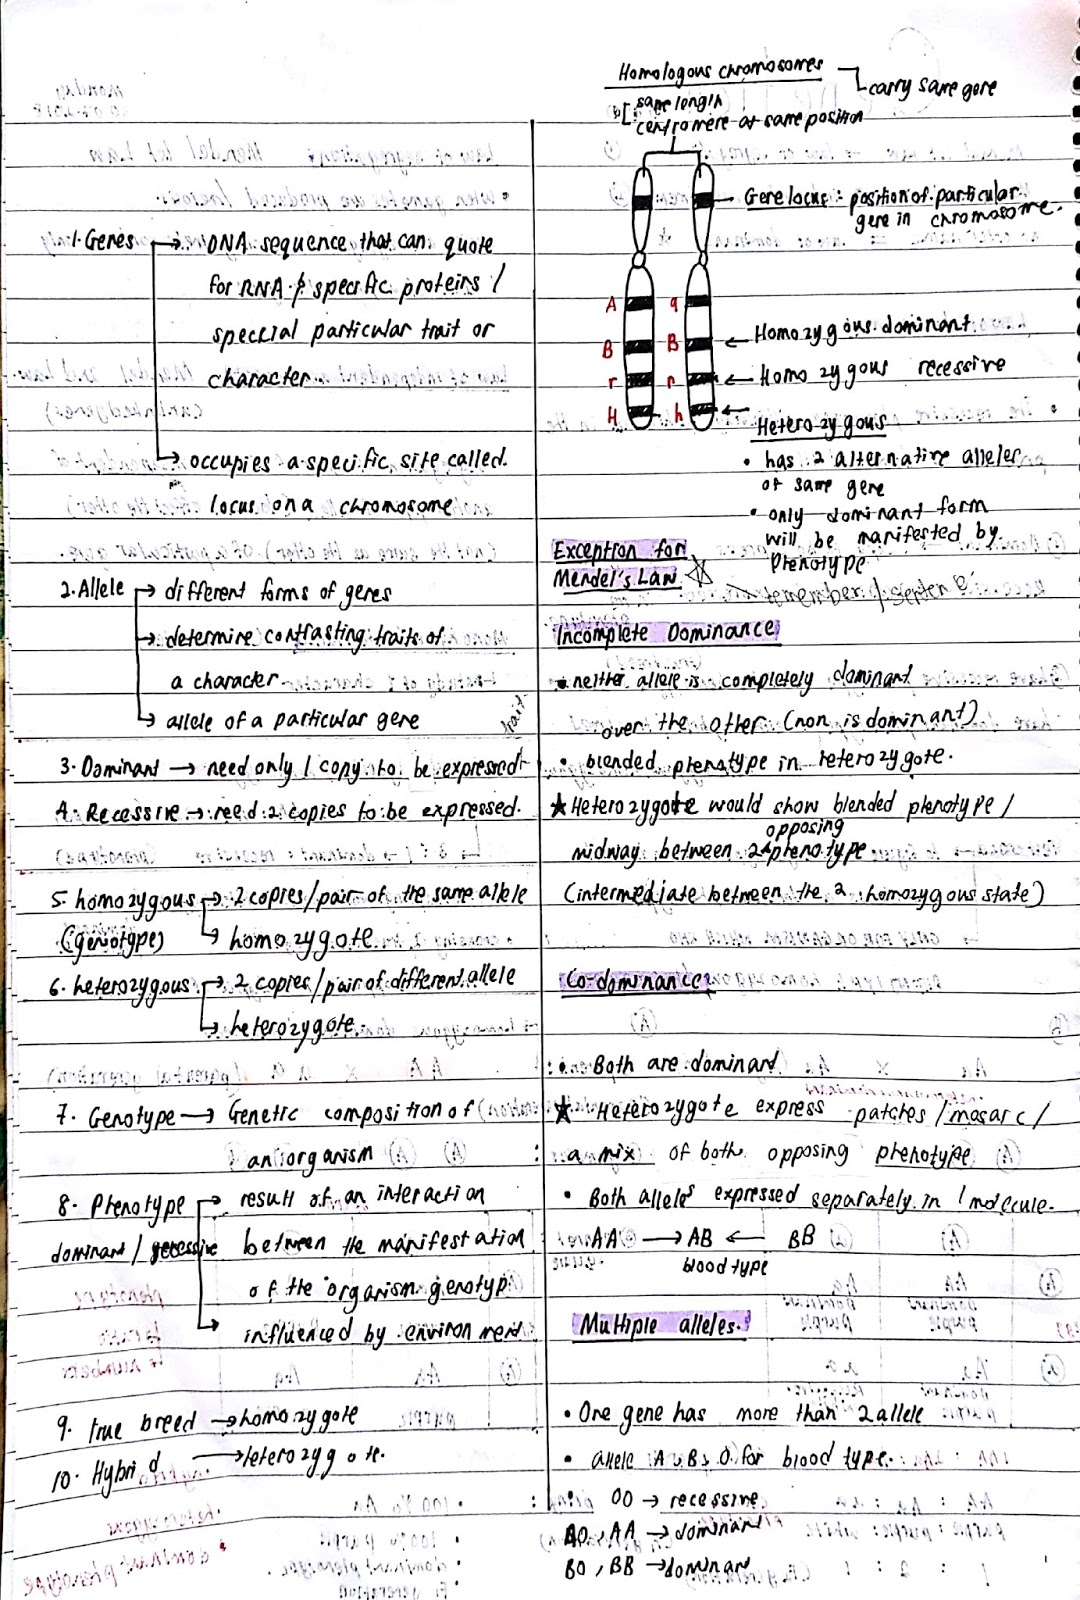 Homologous chromosomes
carry same gene
same length
centromere at same position
Gene locus : position of particular
gene in chromosome.
A a
B B
r r
H h
Homozygous dominant
Homozygous recessive
Heterozygous
• has 2 alternative alleles
of same gene
• only dominant form
will be manifested by
Phenotype
1. Genes → DNA sequence that can quote
for RNA & specific proteins /
speccial particular trait or
character
→ occupies a specific site called
locus on a chromosome
2. Allele → different forms of genes
→ determine contrasting traits of
a character
→ allele of a particular gene
trait
3. Dominant → need only 1 copy to be expressed
4. Recessive → need 2 copies to be expressed.
5. homozygous → 2 copies/pair of the same allele
(genotype) → homozygote
6. heterozygous → 2 copies/pair of different allele
→ heterozygote
7. Genotype → Genetic composition of
an organism
8. Phenotype → result of an interaction
dominant / recessive between the manifestation
of the organism genotyp
→ influenced by environment
9. true breed → homozygote
10. Hybrid → heterozygote.
Exception for
Mendel's Law
Incomplete Dominance
• neither allele is completely dominant
over the other (non is dominant)
• blended phenotype in heterozygote.
★ Heterozygote would show blended phenotype /
opposing
midway between 2 phenotype
(intermediate between the 2 homozygous state)
Co-dominance
• Both are dominant
★ Heterozygote express patches / mosaic /
a mix of both opposing phenotype
• Both alleles expressed separately in 1 molecule.
AA → AB ← BB
blood type
Multiple alleles.
• One gene has more than 2 allele
• allele A, B, O for blood type.
• OO → recessive
AO, AA → dominant
BO, BB → dominant